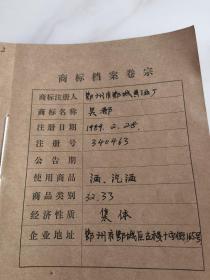 商标档案卷宗
商标注册人 鄂州市鄂城县酒厂
商标名称 吴都
注册日期 1989.2.28.
注册号 340463
公告期
使用商品 酒、汽酒
商品类别 32.33
经济性质 集体
企业地址 鄂州市鄂城区古楼十字街165号